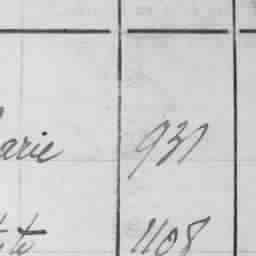 arie 931
1108